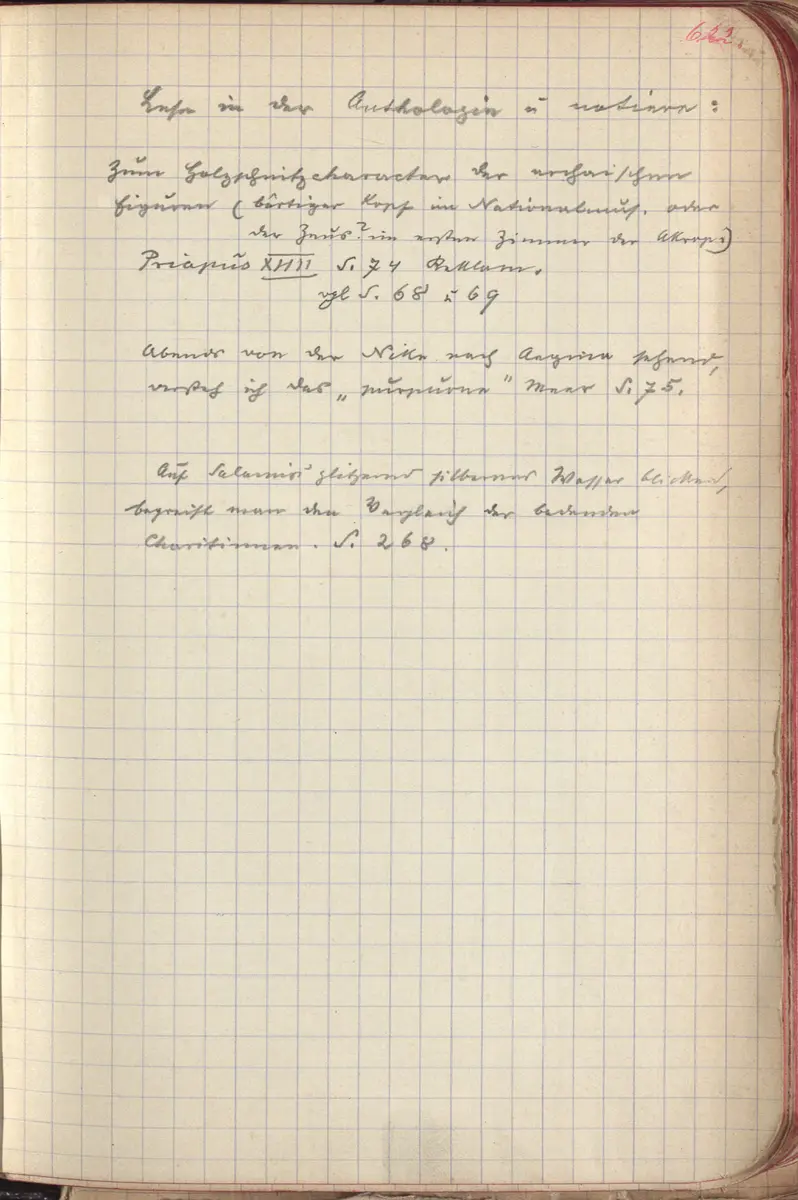 622
Lese in der Anthologie u notiere:
Zum Holzschnittcharacter der archaischen
Figuren (bärtiger Kopf im Nationalmus. oder
der Zeus? im ersten Zimmer der Akrop.)
Priapus XIIII S. 74 Reklam.
vgl S. 68 u 69
Abends von der Nike nach Aegina sehend,
versteh ich das „purpurne" Meer S. 75.
Auf Salamis' glitzernd silbernes Wasser blickend,
begreift man den Vergleich der badenden
Charitinnen. S. 268.